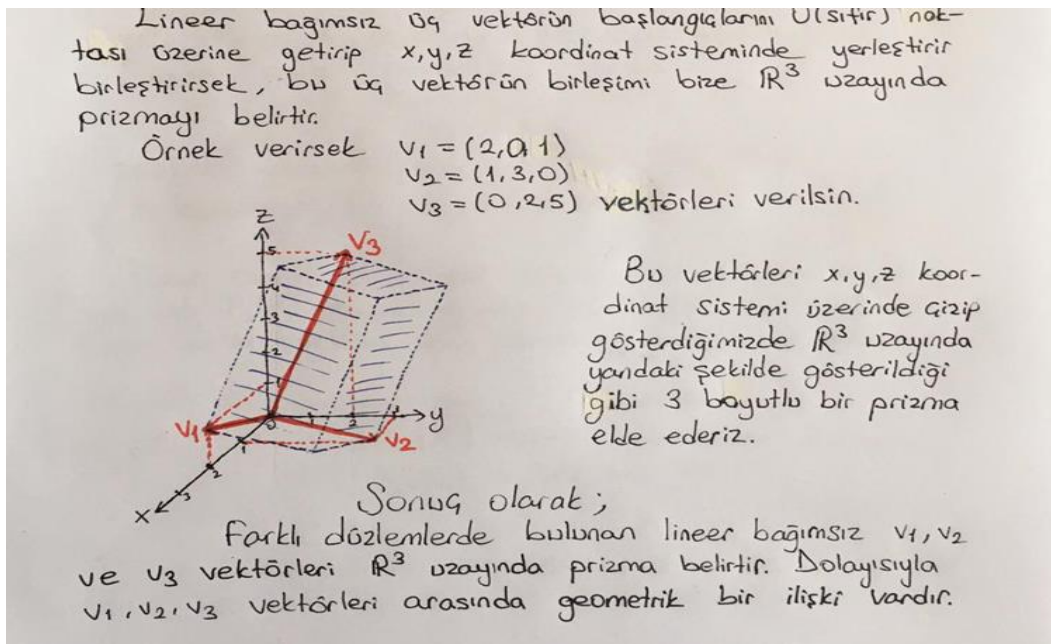 Lineer bağımsız üç vektörün başlangıçlarını O(sıfır) nok-
tası üzerine getirip x,y,z koordinat sisteminde yerleştirir
birleştirirsek, bu üç vektörün birleşimi bize R³ uzayında
prizmayı belirtir.
Örnek verirsek v1 = (2,0,1)
v2 = (1,3,0)
v3 = (0,2,5) vektörleri verilsin.
z
5
4
3
2
1
v3
0
1
2
y
v1
v2
1
2
3
x
Bu vektörleri x,y,z koor-
dinat sistemi üzerinde çizip
gösterdiğimizde R³ uzayında
yandaki şekilde gösterildiği
gibi 3 boyutlu bir prizma
elde ederiz.
Sonuç olarak;
Farklı düzlemlerde bulunan lineer bağımsız v1, v2
ve v3 vektörleri R³ uzayında prizma belirtir. Dolayısıyla
v1, v2, v3 vektörleri arasında geometrik bir ilişki vardır.